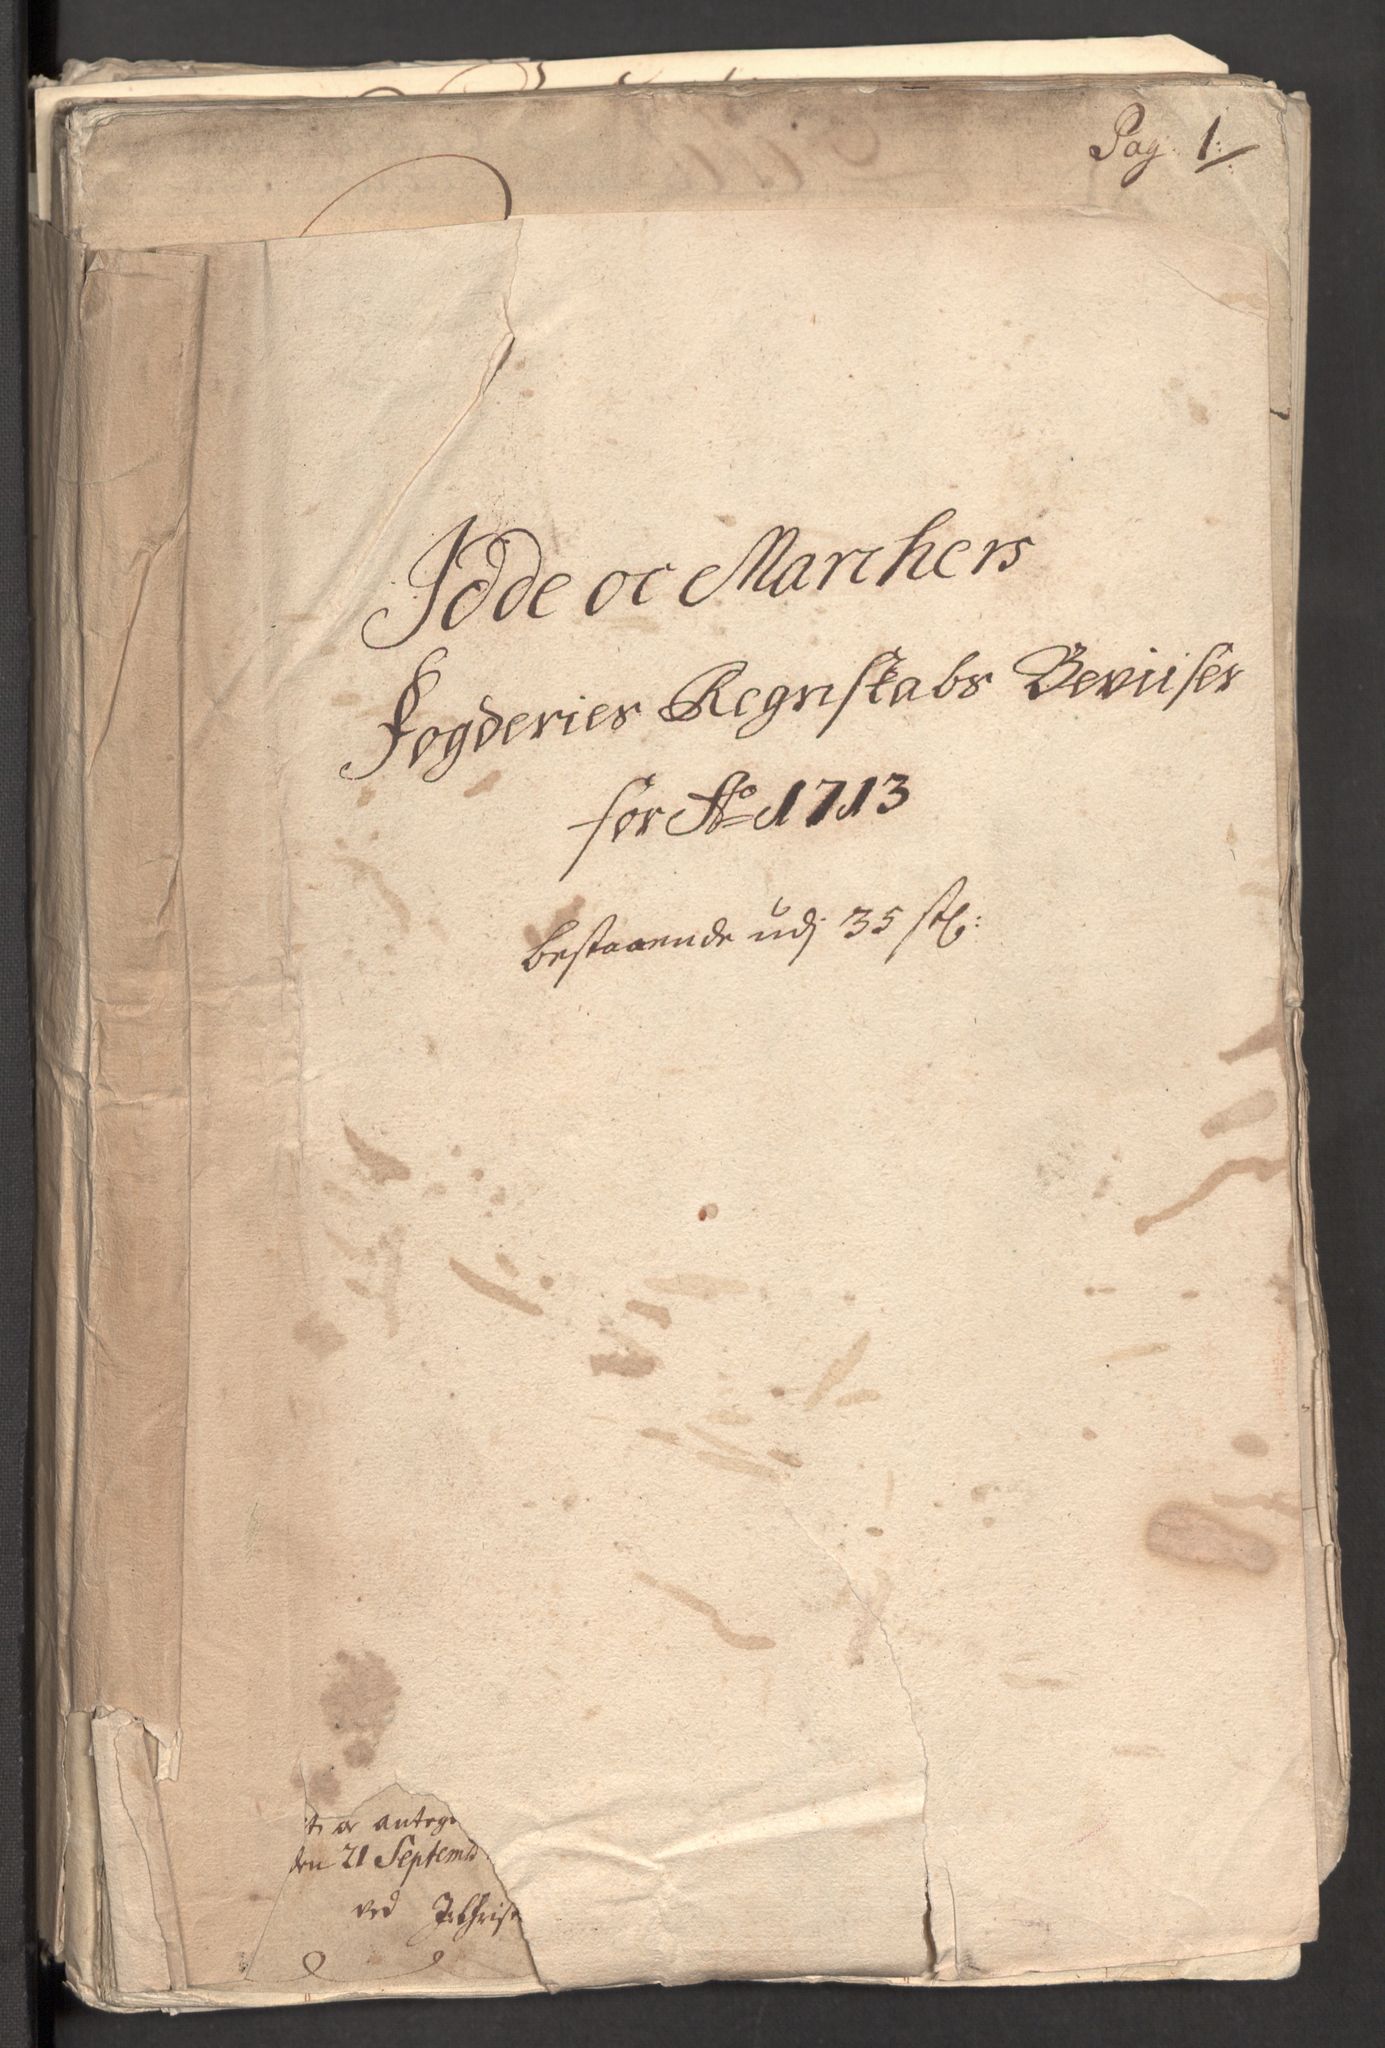 Pag: 1:
Idde oc Marchers
Fogderies Regnskabs Beviiser
for Ao 1713
bestaaende udj 35 st:
or antegn
den 21 Septemb
ved J: Christ